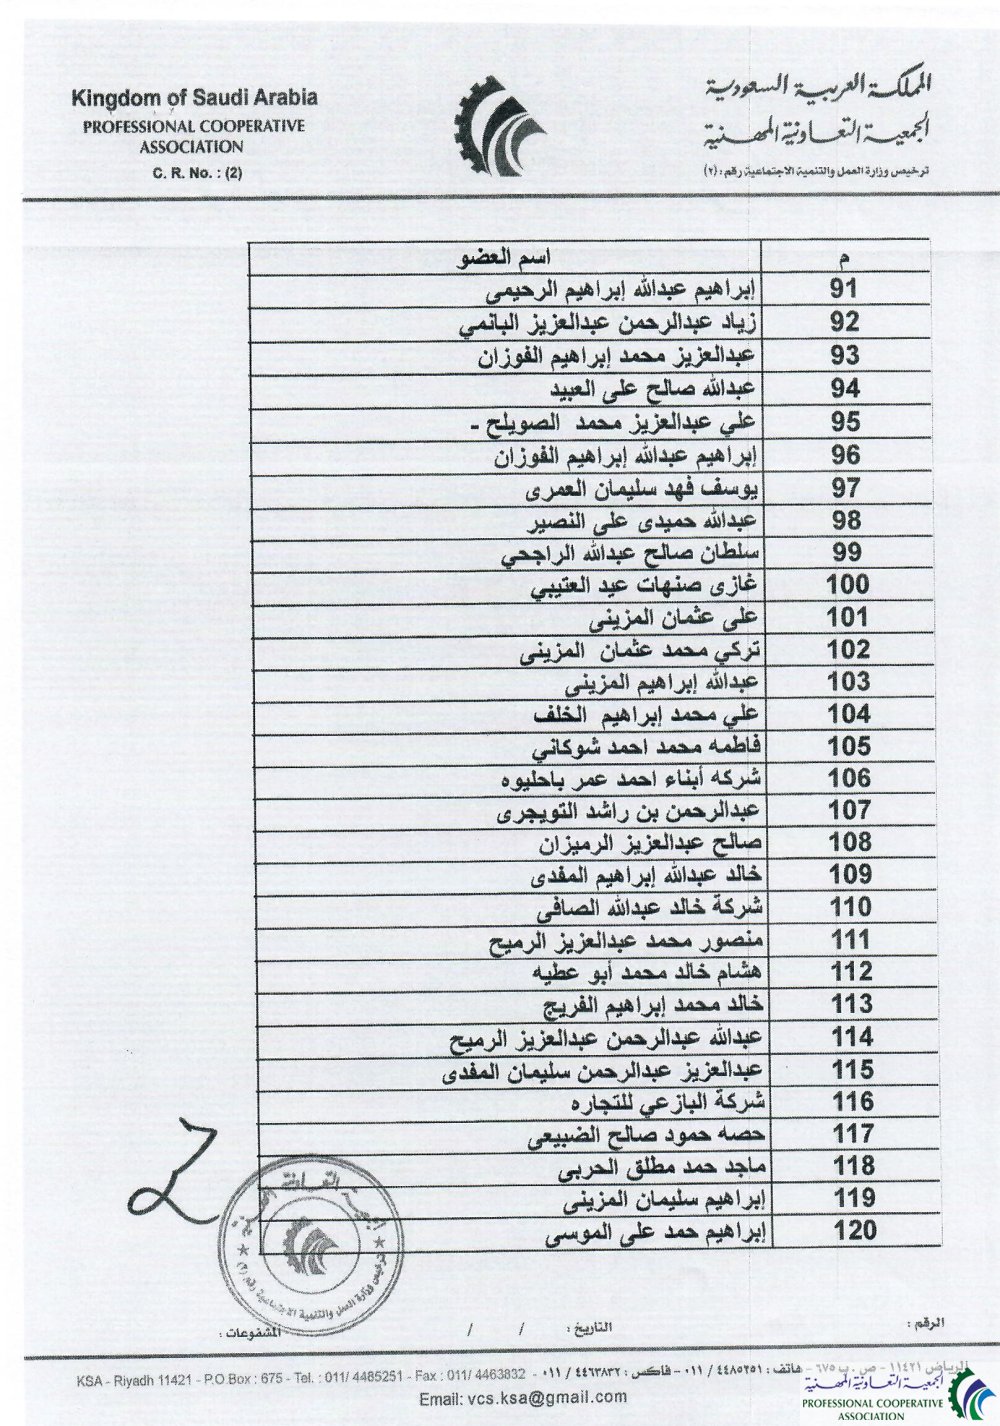 Kingdom of Saudi Arabia
PROFESSIONAL COOPERATIVE
ASSOCIATION
C. R. No. : (2)
المملكة العربية السعودية
الجمعية التعاونية المهنية
ترخيص وزارة العمل والتنمية الاجتماعية رقم : (٢)
م اسم العضو
91 إبراهيم عبدالله إبراهيم الرحيمى
92 زياد عبدالرحمن عبدالعزيز البانمي
93 عبدالعزيز محمد إبراهيم الفوزان
94 عبدالله صالح على العبيد
95 علي عبدالعزيز محمد الصويلح -
96 إبراهيم عبدالله إبراهيم الفوزان
97 يوسف فهد سليمان العمرى
98 عبدالله حميدى على النصير
99 سلطان صالح عبدالله الراجحي
100 غازى صنهات عيد العتيبي
101 على عثمان المزينى
102 تركي محمد عثمان المزينى
103 عبدالله إبراهيم المزينى
104 علي محمد إبراهيم الخلف
105 فاطمه محمد احمد شوكاني
106 شركه أبناء احمد عمر باحليوه
107 عبدالرحمن بن راشد التويجرى
108 صالح عبدالعزيز الرميزان
109 خالد عبدالله إبراهيم المفدى
110 شركة خالد عبدالله الصافى
111 منصور محمد عبدالعزيز الرميح
112 هشام خالد محمد أبو عطيه
113 خالد محمد إبراهيم الفريج
114 عبدالله عبدالرحمن عبدالعزيز الرميح
115 عبدالعزيز عبدالرحمن سليمان المفدى
116 شركة البازعي للتجاره
117 حصه حمود صالح الضبيعى
118 ماجد حمد مطلق الحربى
119 إبراهيم سليمان المزينى
120 إبراهيم حمد على الموسى
الجمعية التعاونية المهنية
ترخيص وزارة العمل والتنمية الاجتماعية رقم (٢)
الرقم : التاريخ : / / المشفوعات :
الرياض ١١٤٢١ - ص . ب ٦٧٥ - هاتف : ٤٤٨٥٢٥١ / ٠١١ - فاكس : ٤٤٦٣٨٣٢ / ٠١١
KSA - Riyadh 11421 - P.O.Box : 675 - Tel. : 011/ 4485251 - Fax : 011/ 4463832
Email: vcs.ksa@gmail.com
الجمعية التعاونية المهنية
PROFESSIONAL COOPERATIVE
ASSOCIATION